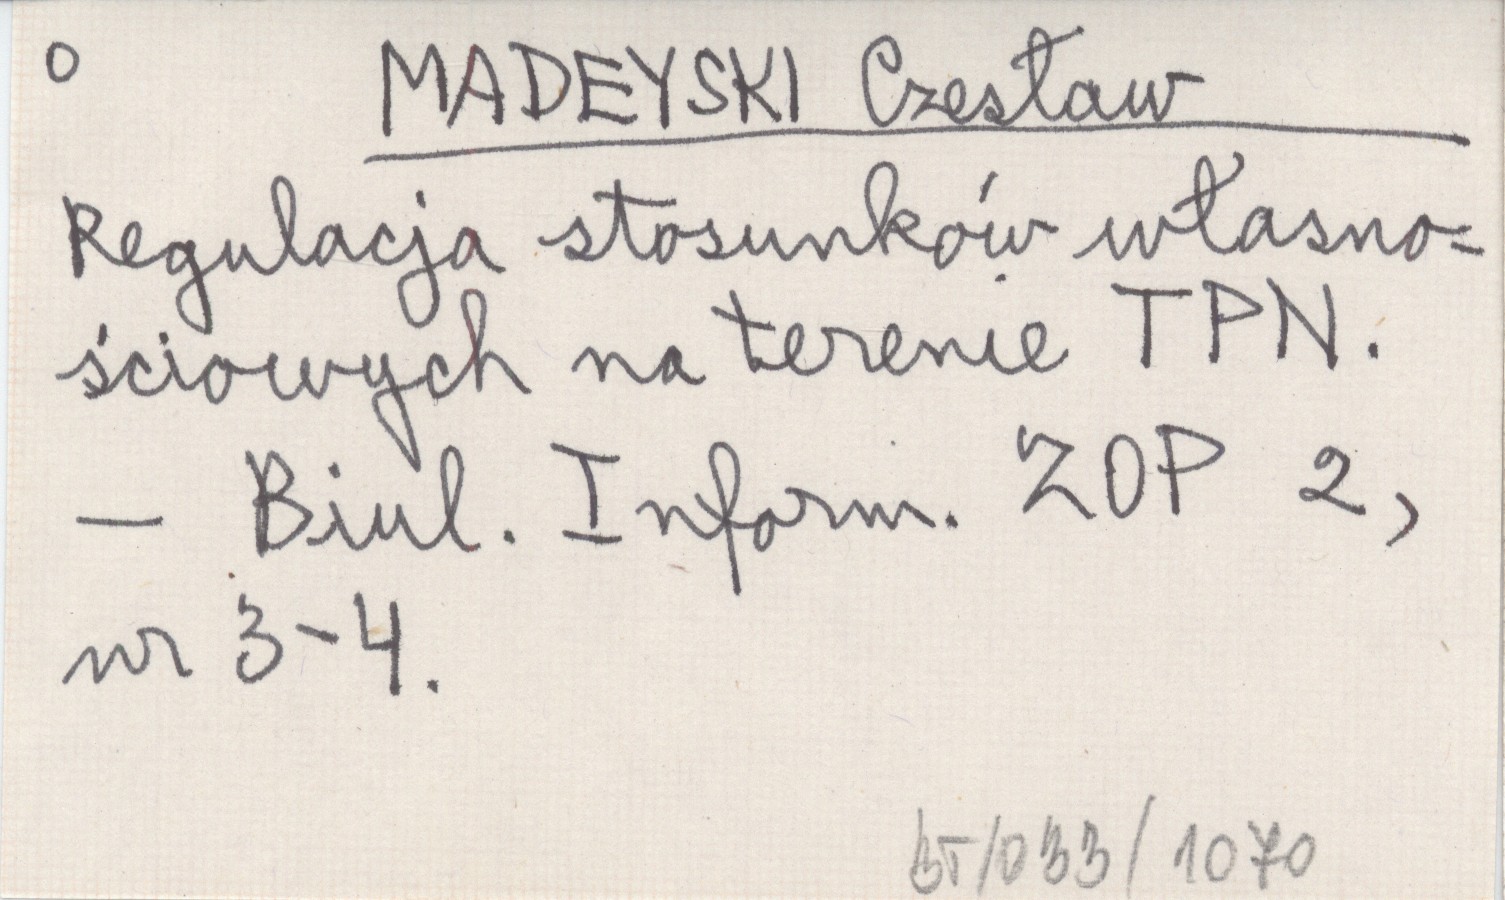 o MADEYSKI Czesław
Regulacja stosunków własno=
ściowych na terenie TPN.
— Biul. Inform. ZOP 2,
nr 3-4.
/033/1070